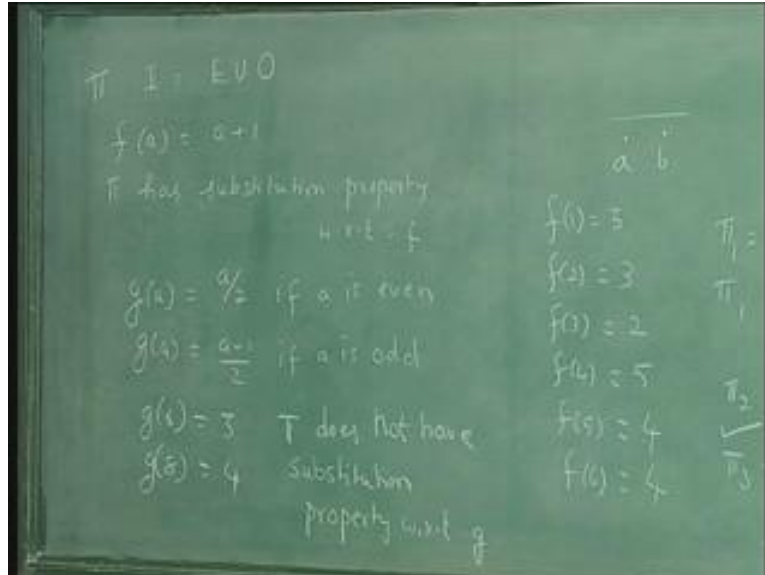 π I = E U O
f(a) = a+1
π has substitution property
w.r.t. f
g(a) = a/2 if a is even
g(a) = a-1/2 if a is odd
g(6) = 3 π does not have
g(8) = 4 substitution
property w.r.t g
a b
f(1) = 3
f(2) = 3
f(3) = 2
f(4) = 5
f(5) = 4
f(6) = 4
π1 =
π1
π2
π3